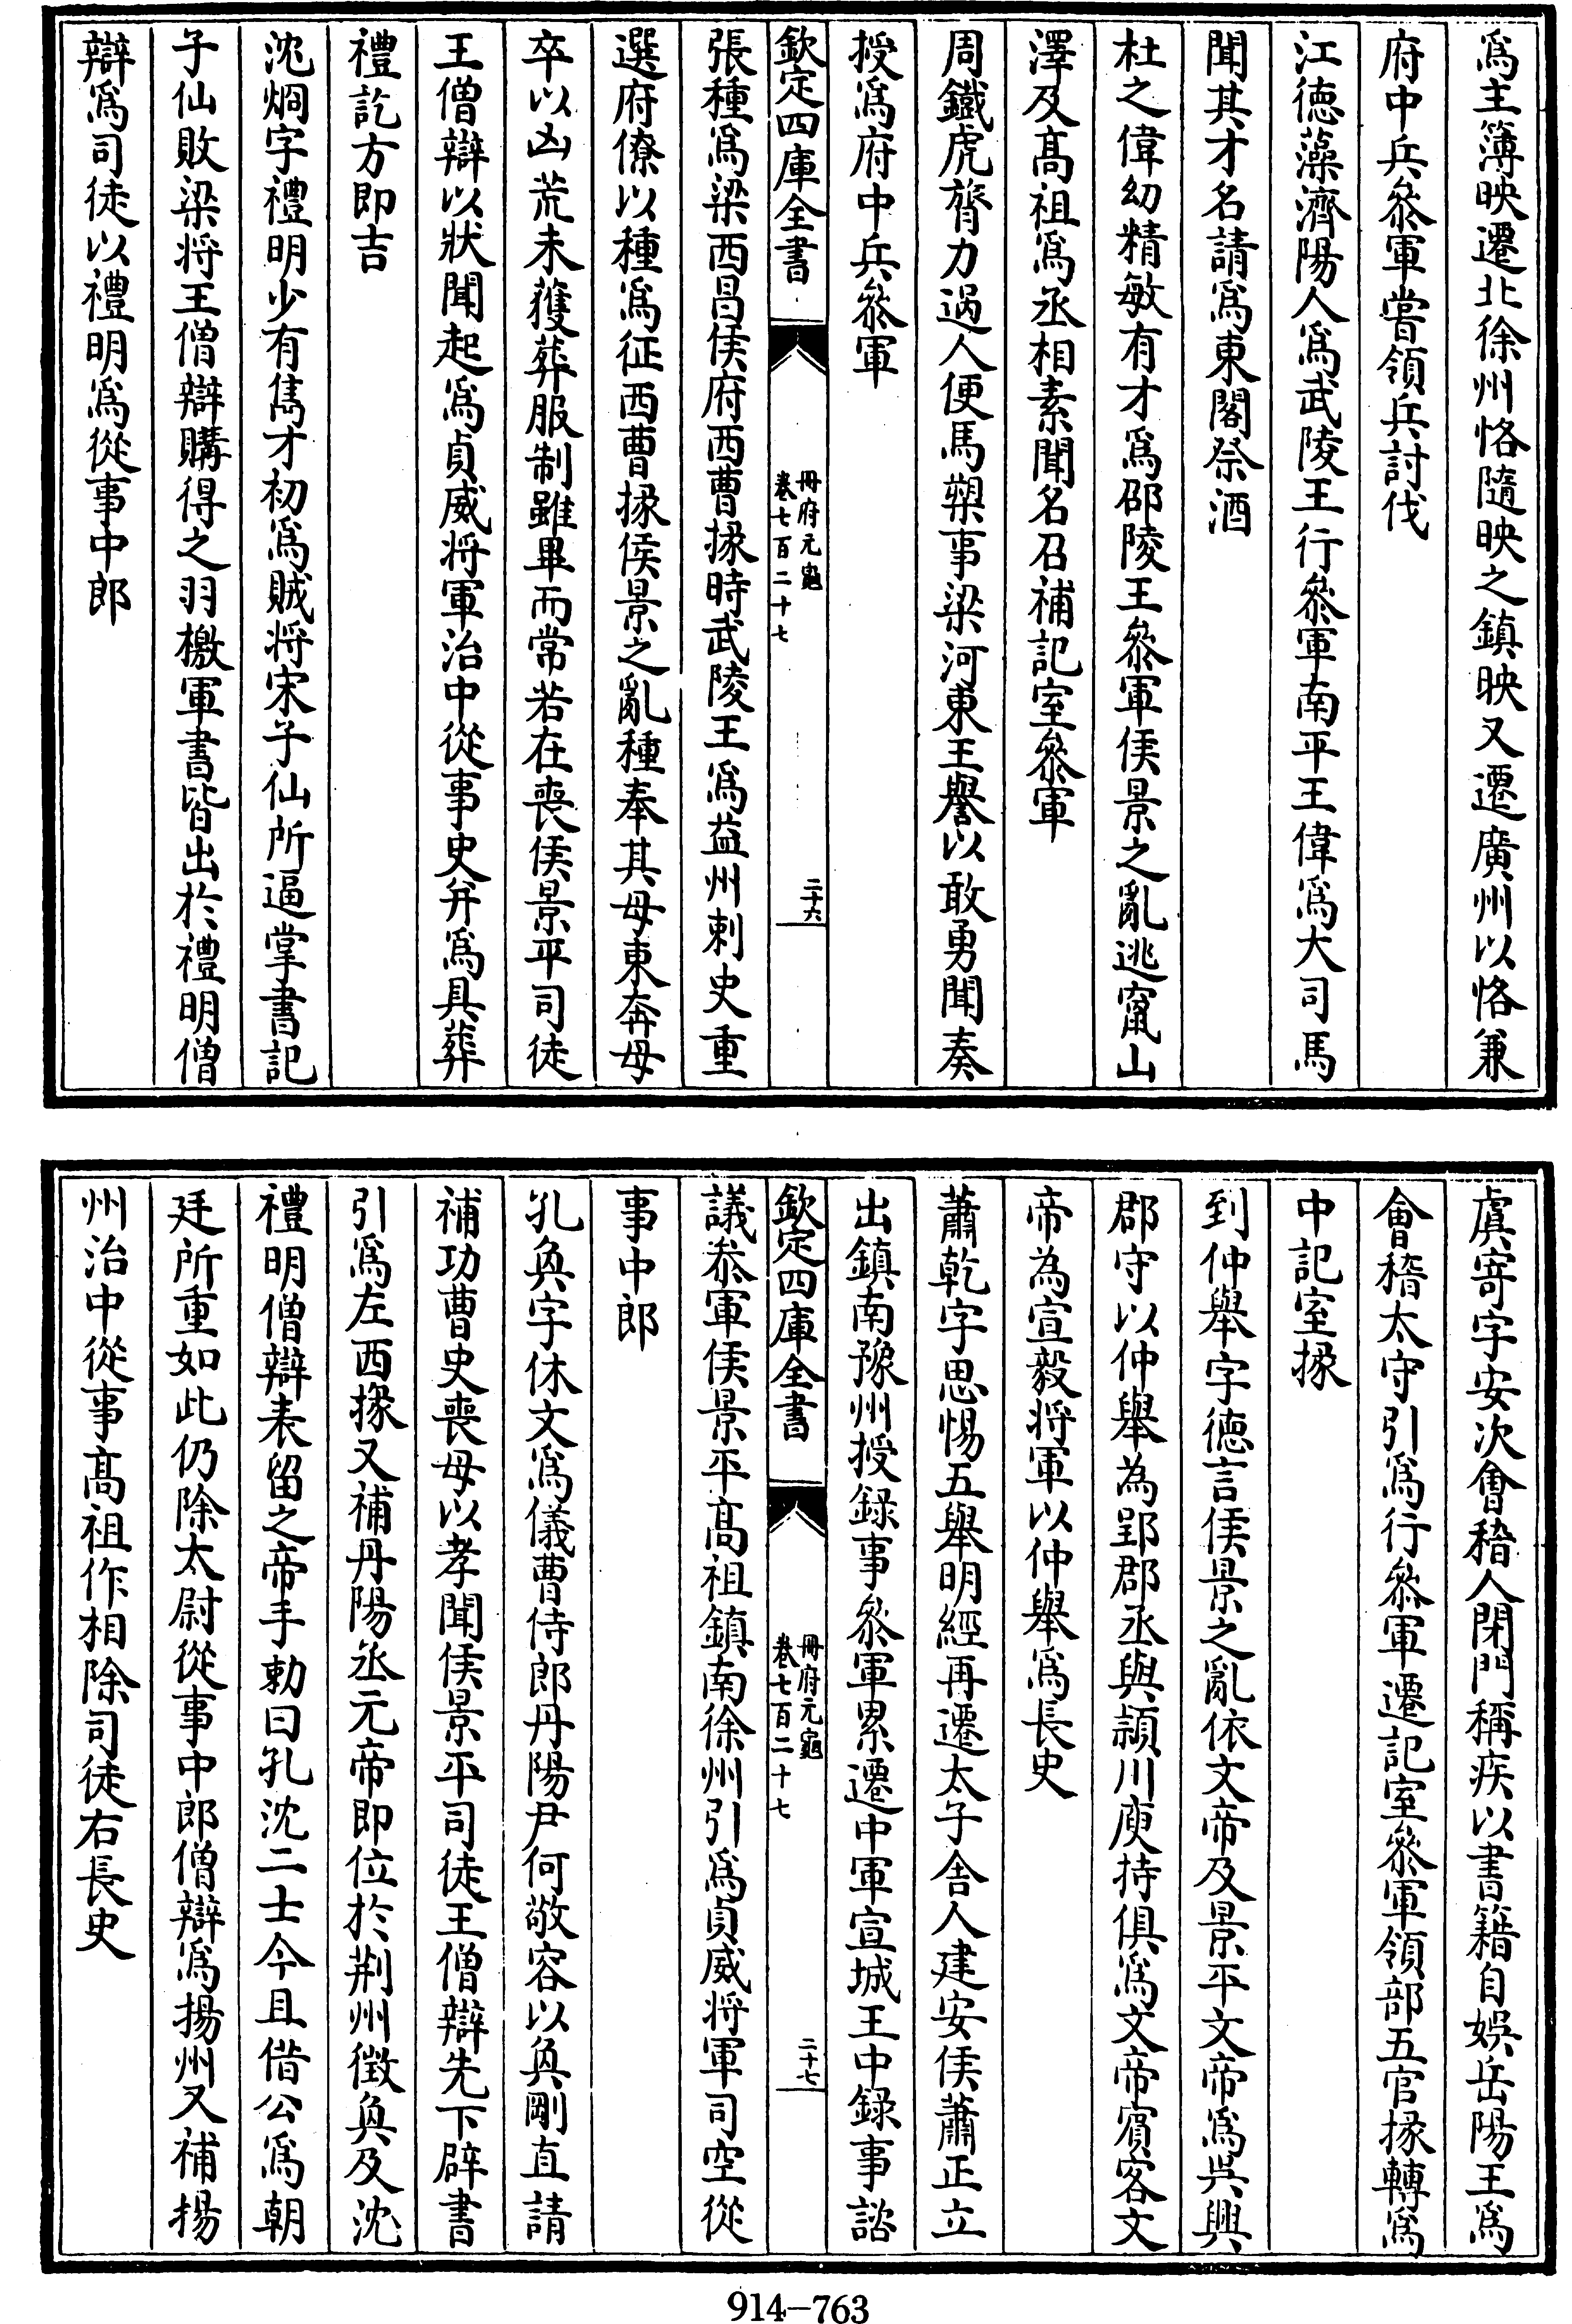 爲主簿映遷北徐州恪隨映之鎮映又遷廣州以恪兼
府中兵叅軍嘗領兵討伐
江徳藻濟陽人爲武陵王行叅軍南平王偉爲大司馬
聞其才名請爲東閣祭酒
杜之偉幼精敏有才爲邵陵王叅軍侯景之亂逃竄山
澤及髙祖爲丞相素聞名召補記室叅軍
周鐵虎膂力過人便馬槊事梁河東王譽以敢勇聞奏
授爲府中兵叅軍
欽定四庫全書
冊府元龜
卷七百二十七
二十六
張種爲梁西昌侯府西曹掾時武陵王爲益州刺史重
選府僚以種爲征西曹掾侯景之亂種奉其母東奔母
卒以凶荒未獲葬服制雖畢而常若在喪侯景平司徒
王僧辯以狀聞起爲貞威将軍治中從事史弁爲具葬
禮訖方即吉
沈烱字禮明少有雋才初爲賊将宋子仙所逼掌書記
子仙敗梁将王僧辯購得之羽檄軍書皆出於禮明僧
辯爲司徒以禮明爲從事中郎
虞寄字安次會稽人閉門稱疾以書籍自娯岳陽王爲
會稽太守引爲行叅軍遷記室叅軍領部五官掾轉爲
中記室掾
到仲舉字徳言侯景之亂依文帝及景平文帝爲吳興
郡守以仲舉為郢郡丞與頴川庾持俱爲文帝賓客文
帝為宣毅将軍以仲舉爲長史
蕭乾字思惕五舉明經再遷太子舍人建安侯蕭正立
出鎮南豫州授録事叅軍累遷中軍宣城王中録事諮
欽定四庫全書
冊府元龜
卷七百二十七
二十七
議叅軍侯景平髙祖鎮南徐州引爲貞威将軍司空從
事中郎
孔奐字休文爲儀曹侍郎丹陽尹何敬容以奐剛直請
補功曹史喪母以孝聞侯景平司徒王僧辯先下辟書
引爲左西掾又補丹陽丞元帝即位於荆州徴奐及沈
禮明僧辯表留之帝手勅曰孔沈二士今且借公爲朝
廷所重如此仍除太尉從事中郎僧辯爲揚州又補揚
州治中從事髙祖作相除司徒右長史
914-763